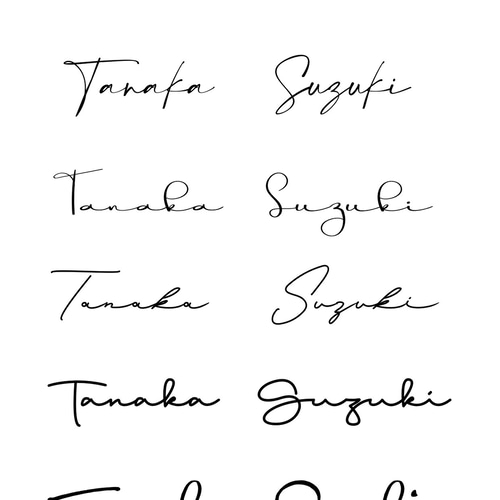 Tanaka Suzuki
Tanaka Suzuki
Tanaka Suzuki
Tanaka Suzuki